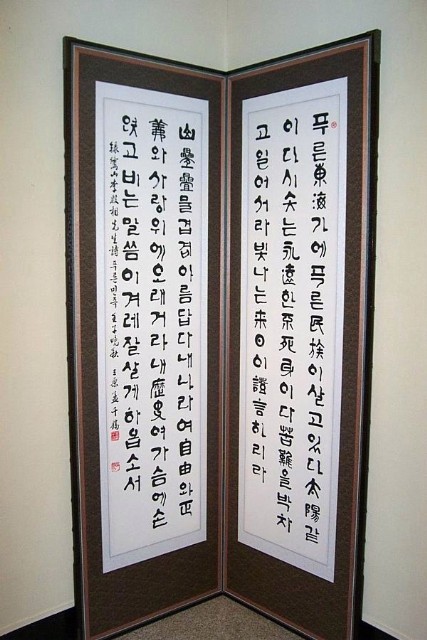 푸른東海가에푸른民族이살고있다太陽같
이다시솟는永遠한不死身이다苦難을박차
고일어서라빛나는來日이證言하리라
山疊疊물겹겹아름답다내나라여自由와正
義와사랑위에오래거라내歷史여가슴에손
얹고비는말씀이겨레잘살게하옵소서
錄鷺山李殷相先生詩푸른민족 壬午晩秋